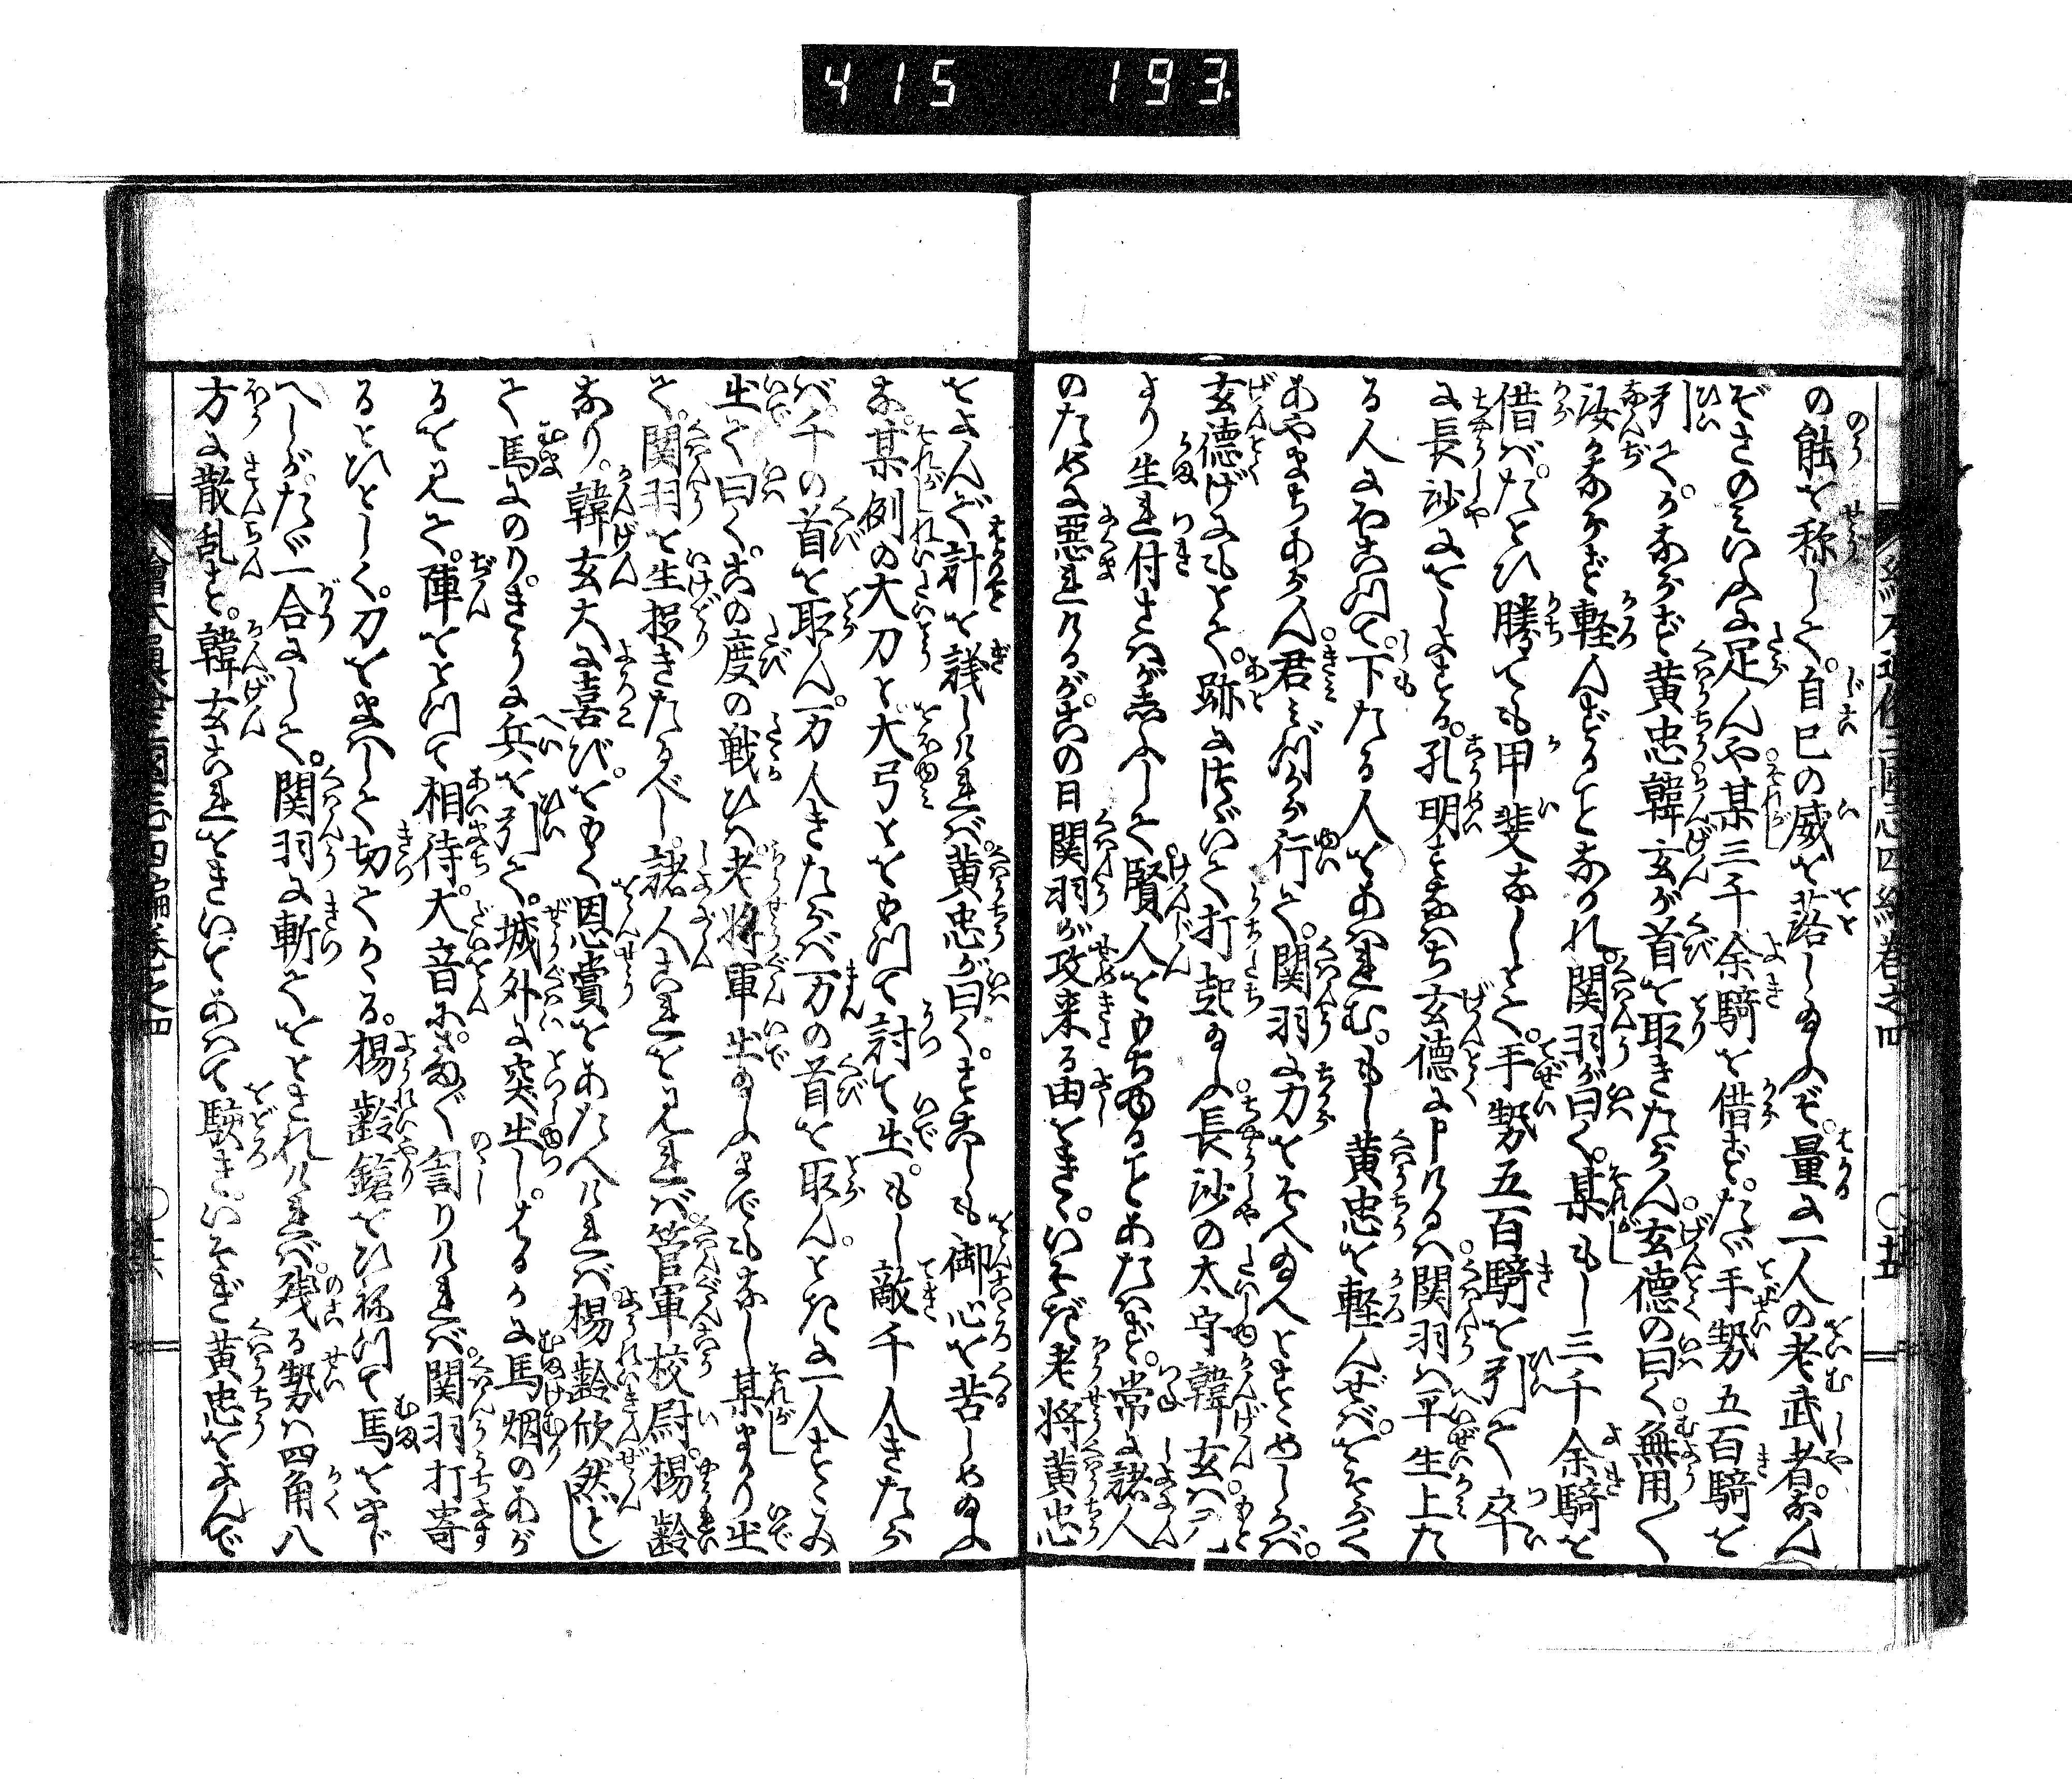 415 193.
の能を称して。自己の威を落し玉ふぞ。量に一人の老武者なん
ぞさのミいふに足んや某三千余騎を借ず。たゞ手勢五百騎を
引て。かならず黄忠韓玄が首を取きたらん。玄徳の曰く無用〱
汝かならず軽んずることなかれ。関羽が曰く。某もし三千余騎を
借ばたとひ勝ても甲斐なしとて。手勢五百騎を引て卒
に長沙におしよする。孔明すなハち玄徳に申けるハ関羽ハ平生上た
る人におこつて。下たる人をあハれむ。もし黄忠を軽んぜバ。おそらく
あやまちあらん。君ミづから行て。関羽に力をそへ玉へとすゝめしかバ。
玄徳げにもとて。跡につゞいて打起玉ふ。長沙の太守韓玄ハ。元
より生れ付さハがしふして賢人をもちゆることあたハず。常に諸人
のために悪れけるが。此の日関羽が攻来る由をきゝ。いそぎ老将黄忠
をよんで計を議しけれバ。黄忠が曰く。すこしも御心を苦しめ玉ふ
な。某例の大刀と大弓とをもつて討て出。もし敵千人きたら
バ。千の首を取ん。万人きたらバ万の首を取ん。ときに一人すゝみ
出て曰く。此の度の戦ひハ老将軍出玉ふまでもなし某まかり出
て。関羽を生捉きたるべし。諸人これを見れバ。管軍校尉楊齢
なり。韓玄大に喜び。おもく恩賞をあたへけれバ楊齢欣然とし
て馬にのりきりに兵を引て。城外に突出し。はるかに馬烟のあが
るを見て。陣をとつて相待。大音にさけんで訇りけれバ関羽打寄
るとひとしく。刀をまハして切てかゝる。楊齢鎗をひねつて馬をまじ
へしが。たゞ一合にして。関羽に斬ておとされけれバ。残る勢ハ四角八
方に散乱す。韓玄これをきいてあハて駭き。いそぎ黄忠をよんで
繪本通俗三國志四編卷之四